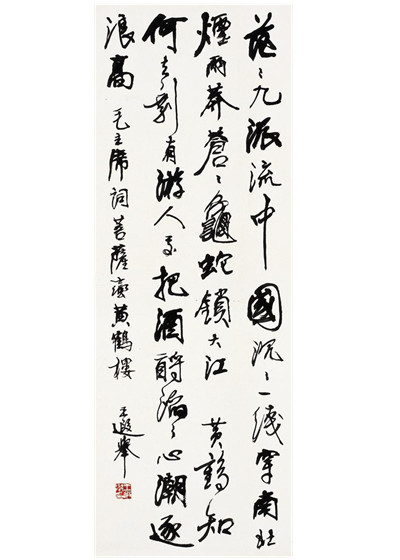 茫〻九派流中國沉〻一綫穿南北
煙雨莽蒼〻龜蛇鎖大江 黄鶴知
何去剩有游人处把酒酹滔〻心潮逐
浪高 毛主席詞菩薩蠻黄鶴樓 王遐舉